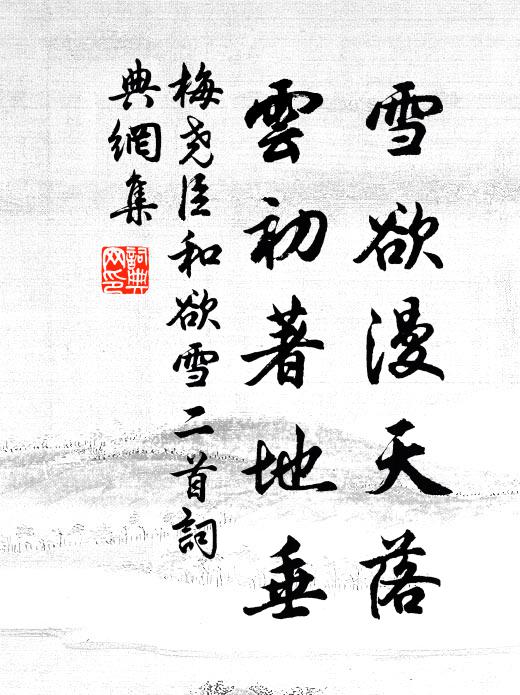 雪欲漫天落
雲初著地垂
梅尭臣和欲雪二首詞
典網集
詞典
网印